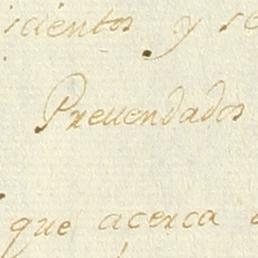 icientos y se
Preuendados
que acerca